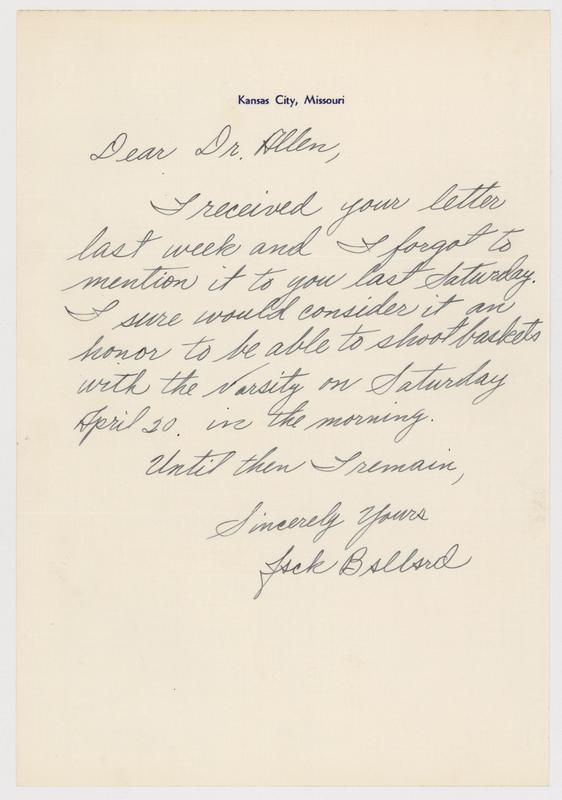 Kansas City, Missouri
Dear Dr. Allen,
I received your letter
last week and I forgot to
mention it to you last Saturday.
I sure would consider it an
honor to be able to shoot baskets
with the varsity on Saturday
April 20. in the morning.
Until then I remain,
Sincerely Yours
Jack Ballard